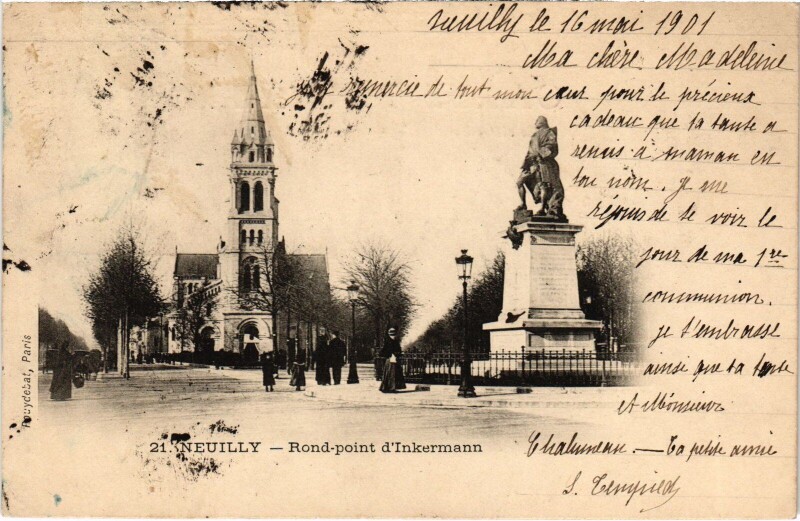 Neuilly le 16 mai 1901
Ma chère Madeleine
remercie de tout mon cœur pour le précieux
cadeau que ta tante a
remis à maman en
ton nom. Je me
réjouis de te voir le
jour de ma 1re
communion.
Je t'embrasse
ainsi que ta tante
et Monsieur
Chalumeau. — Ta petite amie
S.
21. NEUILLY — Rond-point d'Inkermann
Pouydebat, Paris